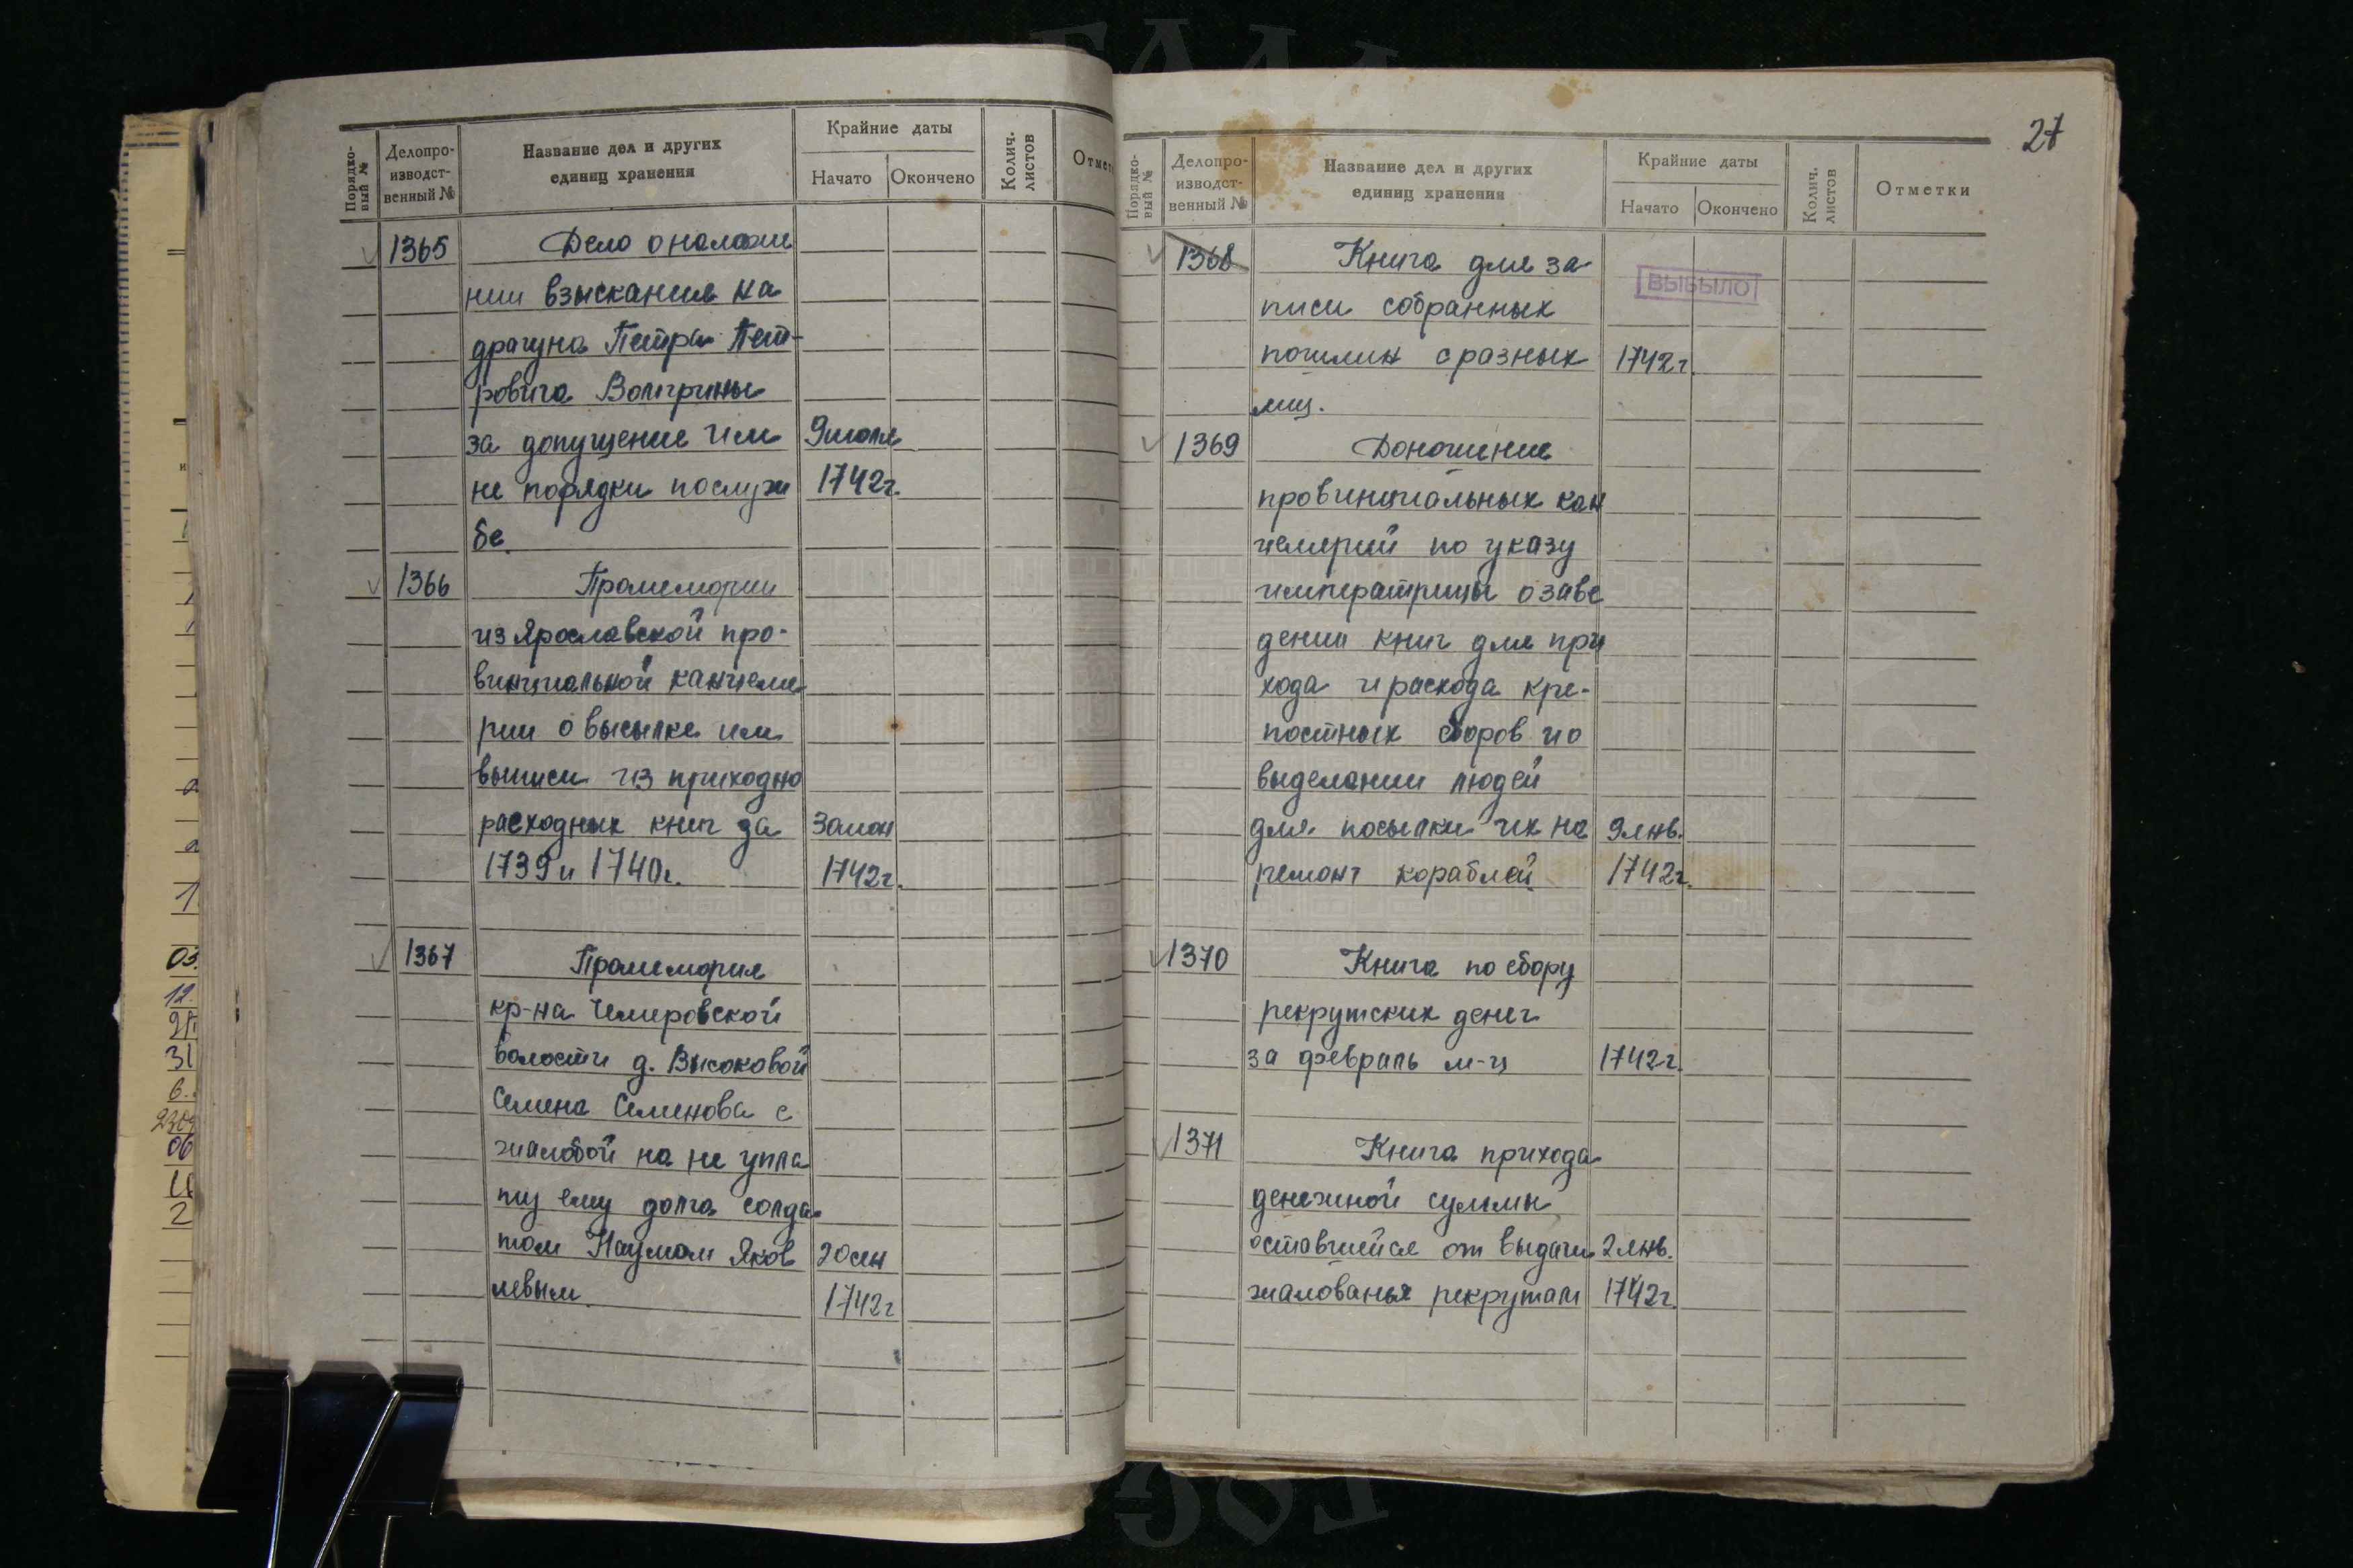 Порядко-
вый №
Делопро-
изводст-
венный №
Название дел и других
единиц хранения
Крайние даты
Начато
Окончено
Колич.
листов
Отмет
1365
Дело о наложе
нии взыскания на
драгуна Петра Пет-
ровича
за допущение им
9 июля
не порядки по служ
1742г.
бе.
1366
Промемории
из Ярославской про-
винциальной канцеля-
рии о высылке им
выписи из приходно
расходных книг за
1739 и 1740г.
1742г.
1367
Промемория
кр-на Чемеровской
волости д. Высоковой
Семена Семенова с
жалобой на не упла
ту ему долга солда-
том Наумом Яков
20 сен
левым.
1742г
27
Порядко-
вый №
Делопро-
изводст-
венный №
Название дел и других
единиц хранения
Крайние даты
Начато
Окончено
Колич.
листов
Отметки
1368
Книга для за
ВЫБЫЛО
писи собранных
пошлин с разных
1742г.
лиц.
1369
Доношение
провинциальных кан
целярий по указу
императрицы о заве
дении книг для при
хода и расхода кре-
постных сборов и о
выделании людей
для посылки их на
9 янв.
ремонт кораблей
1742г.
1370
Книга по сбору
рекрутских денег
за февраль м-ц
1742г.
1371
Книга прихода
денежной суммы
оставшейся от выдачи
2 янв.
жалованья рекрутам
1742г.
03.
12.
31
6.
06
2